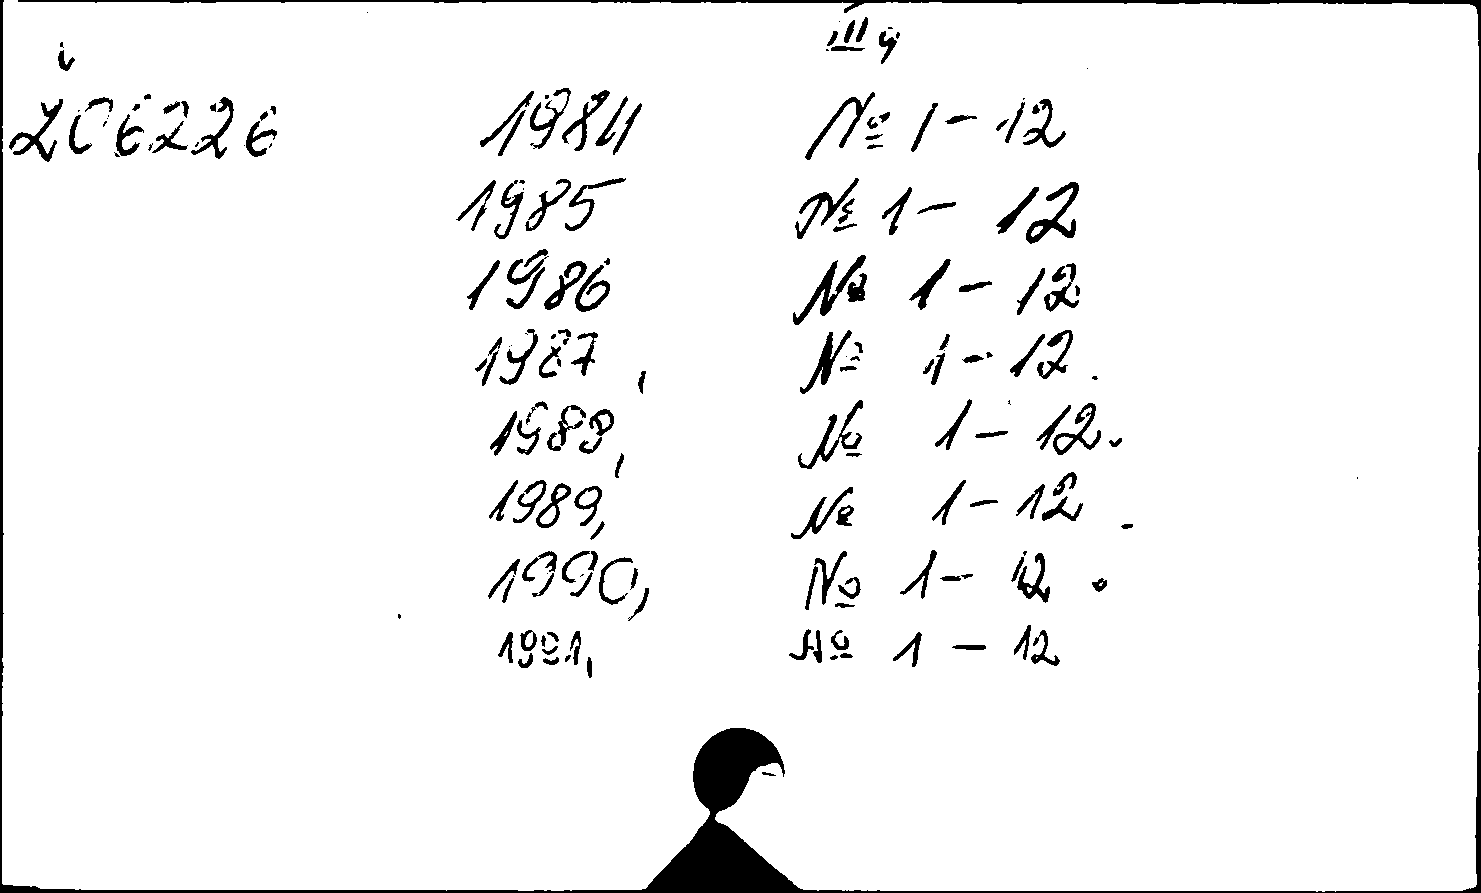 III ч
Z06226 1984 № 1 – 12
1985 № 1 – 12
1986 № 1 – 12
1987, № 1 – 12.
1988, № 1 – 12.
1989, № 1 – 12.
1990, № 1 – 12.
1991, № 1 – 12